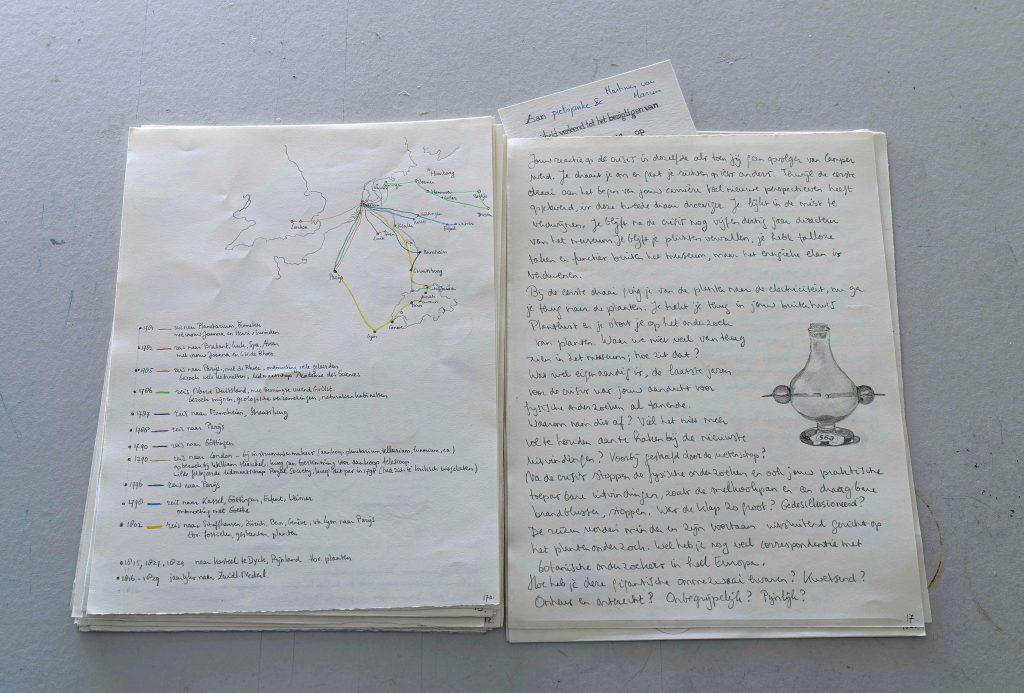 Aan pietsjanke &
Martinus van
Marum
verkend tot het bezigtigen van
op
Hamburg
Bremen
Hannover
Berlijn
Göttingen
Londen
Spa
Mannheim
Straatsburg
Parijs
Schaffhausen
Zürich
Bern
Genève
Lyon
reis naar Planetarium, Franeker
met vrouw Joanna en
1782 reis naar Brabant, Luik, Spa, Aken
met vrouw Joanna en
1785 reis naar Parijs, met de ontmoeting vele geleerden
bezoek vele kabinetten, lidmaatschap Academie des Sciences
1786 reis Noord Duitsland,
bezoek mijnen, geologische verzamelingen, naturaliënkabinetten
reis naar Mannheim, Straatsburg
1788 reis naar Parijs
1790 reis naar Göttingen
1790 reis naar Londen – bij instrumentmakers (aankoop planetarium, tellurium, lunarium, ea)
William Herschel: toestemming voor aankoop telescoop
lidmaatschap Royal Society; in 1798
reis naar Parijs
1798 reis naar Kassel, Göttingen, Erfurt, Weimar
ontmoeting met Goethe
1802 reis naar Schaffhausen, Zürich, Bern, Genève, via Lyon naar Parijs
tbv. fossielen, gesteenten, planten
naar kasteel te Dyck, Rijnland tbv. planten
jaarlijks naar Zuid Nederl.
17a
Jouw reactie op de crisis is dezelfde als toen jij geen opvolger van Camper
werd. Je draait je om en gaat je richten op iets anders. Terwijl de eerste
draai aan het begin van jouw carrière veel nieuwe perspectieven heeft
opgeleverd, is deze tweede draai droeviger. Je lijkt in de mist te
verdwijnen. Je blijft na de crisis nog vijfendertig jaar directeur
van het museum. Je blijft je plichten vervullen, je hebt talloze
taken en functies buiten het museum, maar het energieke elan is
verdwenen.
Bij de eerste draai ging je van de planten naar de electriciteit, nu ga
je terug naar de planten. Je trekt je terug in jouw buitenhuis
Plantlust en je stort je op het onderzoek
van planten. Waar we niet veel van terug
zien in het museum; hoe zit dat?
Wat wel eigenaardig is, de laatste jaren
voor de crisis was jouw aandacht voor
fysische onderzoeken al tanende.
Waarom nam dit af? Viel het niet meer
vol te houden aan te haken bij de nieuwste
uitvindingen? Voorbij gestreefd door de wetenschap?
Na de crisis stoppen de fysische onderzoeken en ook jouw praktische
toepasbare uitvindingen, zoals de snelkookpan en een draagbare
brandblusser, stoppen. Was de klap zo groot? Gedesillusioneerd?
De reizen worden minder en zijn voortaan uitsluitend gericht op
het plantenonderzoek. Wel heb je nog veel correspondentie met
botanische onderzoekers in heel Europa.
Hoe heb je deze gigantische ommezwaai ervaren? Kwetsend?
Onheus en onterecht? Onbegrijpelijk? Pijnlijk?
17